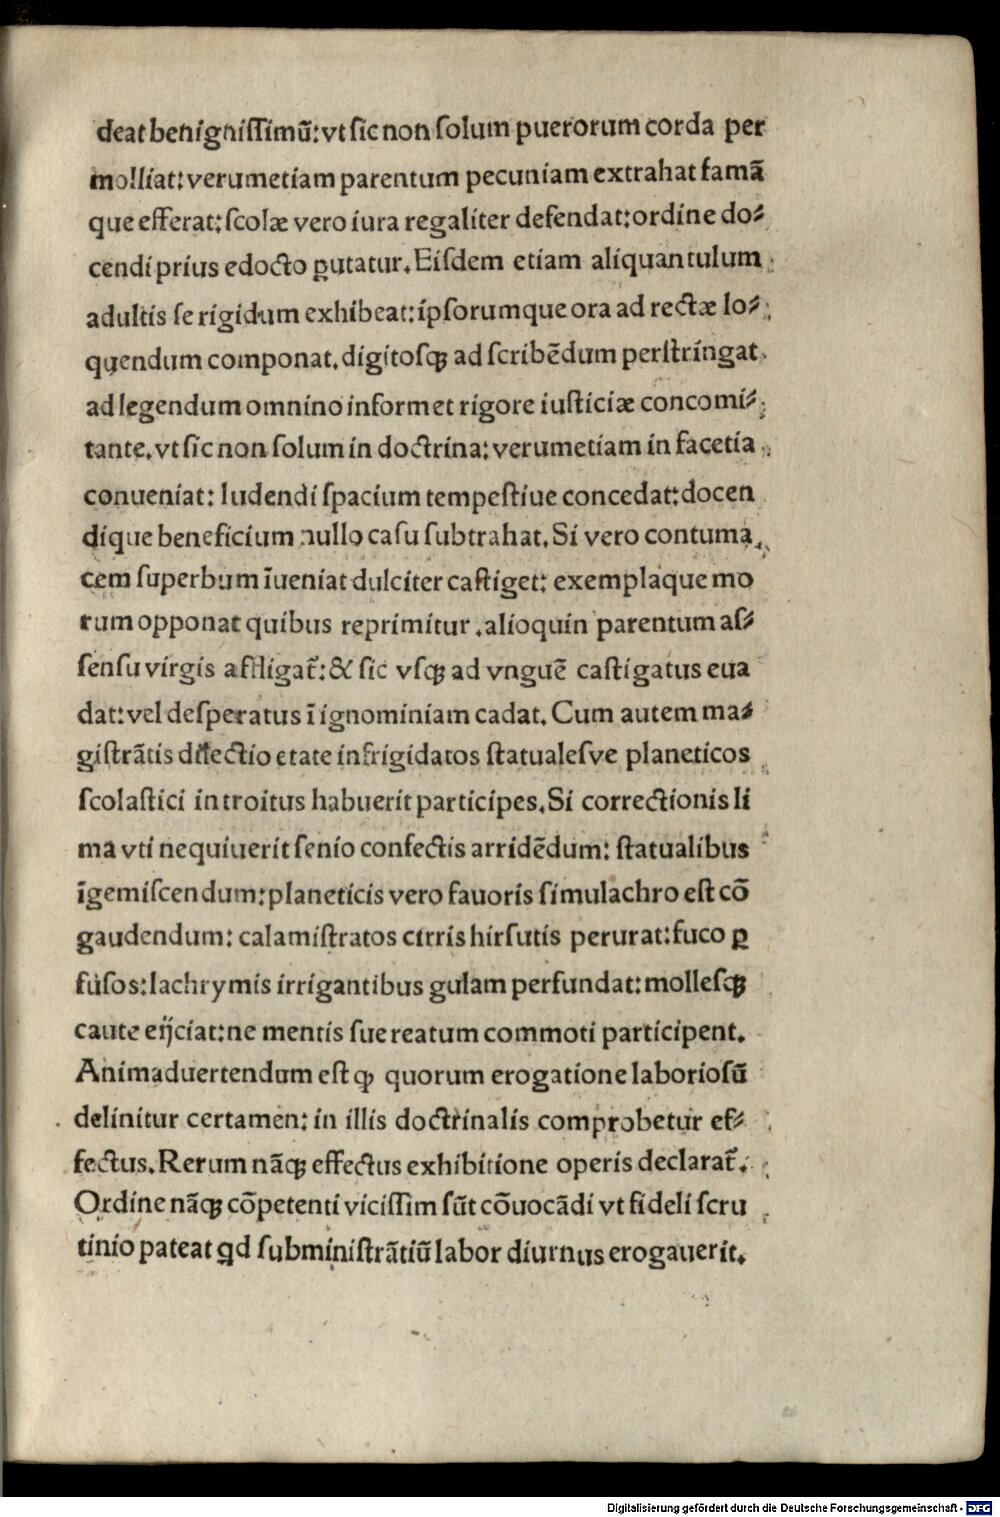 deat benigniſſimū: vt ſic non ſolum puerorum corda per
molliat: verumetiam parentum pecuniam extrahat famā
que efferat: ſcolæ vero iura regaliter defendat: ordine do⸗
cendi prius edocto ꝑutatur. Eiſdem etiam aliquantulum
adultis ſe rigidum exhibeat: ipſorumque ora ad rectæ lo⸗
quendum componat. digitoſꝗ ad ſcribēdum perſtringat
ad legendum omnino informet rigore iuſticiæ concomi⸗
tante. vt ſic non ſolum in doctrina: verumetiam in facetia
conueniat: ludendi ſpacium tempeſtiue concedat: docen
dique beneficium nullo caſu ſubtrahat. Si vero contuma
cem ſuperbum īueniat dulciter caſtiget: exemplaque mo
rum opponat quibus reprimitur. alioquin parentum aſ⸗
ſenſu virgis affligat᷑: & ſic vſꝗ ad vnguē caſtigatus eua
dat: vel deſperatus ī ignominiam cadat. Cum autem ma⸗
giſtrātis dilectio etate infrigidatos ſtatualeſve planeticos
ſcolaſtici introitus habuerit participes. Si correctionis li
ma vti nequiuerit ſenio confectis arridēdum: ſtatualibus
īgemiſcendum: planeticis vero fauoris ſimulachro eſt cō
gaudendum: calamiſtratos cirris hirſutis perurat: fuco ꝑ
fuſos: lachrymis irrigantibus gulam perfundat: molleſꝗ
caute eijciat: ne mentis ſue reatum commoti participent.
Animaduertendum eſt ꝙ quorum erogatione laborioſū
delinitur certamen: in illis doctrinalis comprobetur ef⸗
fectus. Rerum nāꝗ effectus exhibitione operis declarat᷑.
Ordine nāꝗ cōpetenti viciſſim ſūt cōuocādi vt fideli ſcru
tinio pateat ꝗd ſubminiſtrātiū labor diurnus erogauerit.
Digitalisierung gefördert durch die Deutsche Forschungsgemeinschaft - DFG